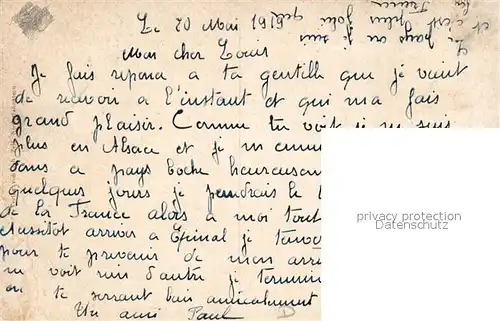 Le 20 Mai 1919
Mon cher Louis
Je fais reponce a ta gentille que je vient
de recevoir a l'instant et qui ma fais
grand plaisir. Comme tu voit je ne suis
plus en Alsace et je m
dans a pays boche heureusem
quelques jours je prendrais le
de la France alors a moi tout
Aussitot arriver a Epinal je
pour te prevenir de mon arri
ne voit rien d'autre je termine
en te serrant bien amicalement
Un ami Paul
et c'est plus joli
le pays ou je suis
privacy protection
Datenschutz